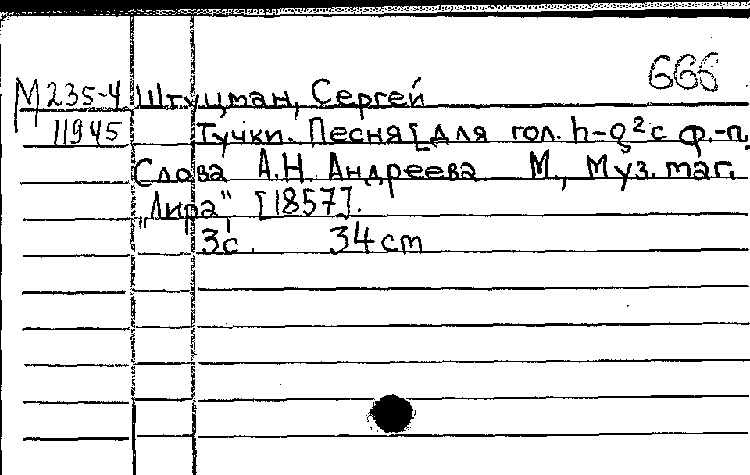 666
М 235-4 Штуцман, Сергей
11945 Тучки. Песня [для гол. h-g² с ф.-п.
Слова А.Н. Андреева М., Муз. маг.
„Лира" [1857].
3с. 34 cm